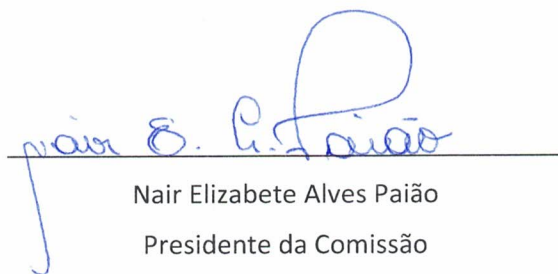 Nair E. A. Paião
Nair Elizabete Alves Paião
Presidente da Comissão